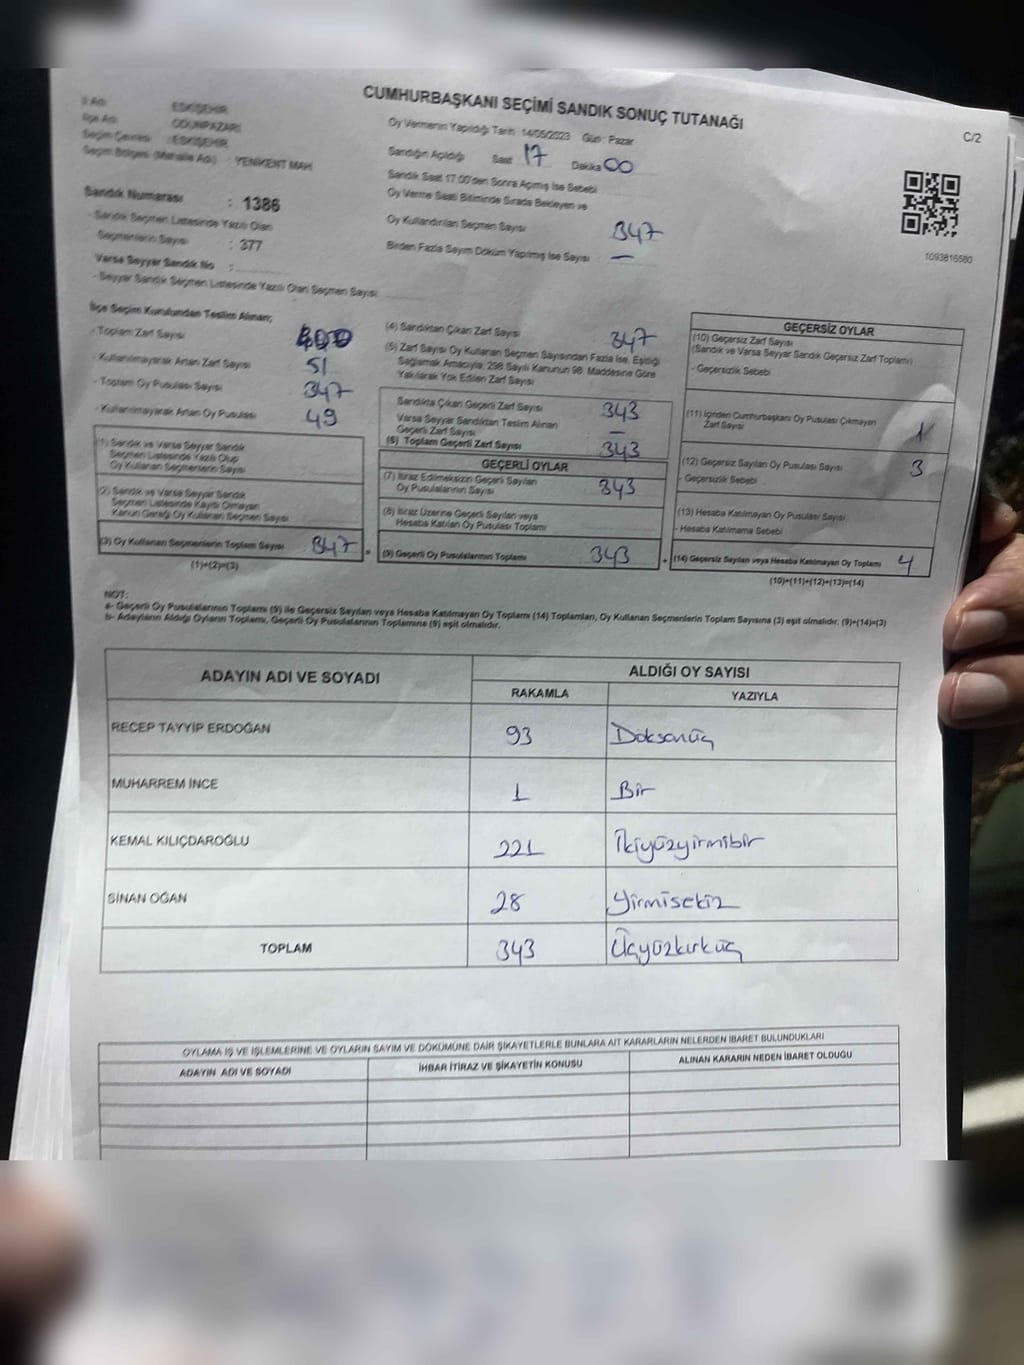 CUMHURBAŞKANI SEÇİMİ SANDIK SONUÇ TUTANAĞI
C/2
İl Adı : ESKİŞEHİR
İlçe Adı : ODUNPAZARI
Seçim Çevresi : ESKİŞEHİR
Seçim Bölgesi (Mahalle Adı) : YENİKENT MAH.
Sandık Numarası : 1386
- Sandık Seçmen Listesinde Yazılı Olan
Seçmenlerin Sayısı : 377
Varsa Seyyar Sandık No :
- Seyyar Sandık Seçmen Listesinde Yazılı Olan Seçmen Sayısı
Oy Vermenin Yapıldığı Tarih : 14/05/2023 Gün : Pazar
Sandığın Açıldığı Saat 17 Dakika 00
Sandık Saat 17.00'den Sonra Açılmış İse Sebebi
Oy Verme Saati Bitiminde Sırada Bekleyen ve
Oy Kullandırılan Seçmen Sayısı 347
Birden Fazla Sayım Döküm Yapılmış İse Sayısı : —
1093816580
İlçe Seçim Kurulundan Teslim Alınan;
- Toplam Zarf Sayısı
- Kullanılmayarak Artan Zarf Sayısı 51
- Toplam Oy Pusulası Sayısı 347
- Kullanılmayarak Artan Oy Pusulası 49
(1) Sandık ve Varsa Seyyar Sandık
Seçmen Listesinde Yazılı Olup
Oy Kullanan Seçmenlerin Sayısı
(2) Sandık ve Varsa Seyyar Sandık
Seçmen Listesinde Kaydı Olmayan
Kanun Gereği Oy Kullanan Seçmen Sayısı
(3) Oy Kullanan Seçmenlerin Toplam Sayısı 347
(1)+(2)=(3)
(4) Sandıktan Çıkan Zarf Sayısı 347
(5) Zarf Sayısı Oy Kullanan Seçmen Sayısından Fazla İse, Eşitliği
Sağlamak Amacıyla, 298 Sayılı Kanunun 98. Maddesine Göre
Yakılarak Yok Edilen Zarf Sayısı
Sandıkta Çıkan Geçerli Zarf Sayısı 343
Varsa Seyyar Sandıktan Teslim Alınan
Geçerli Zarf Sayısı —
(6) Toplam Geçerli Zarf Sayısı 343
GEÇERLİ OYLAR
(7) İtiraz Edilmeksizin Geçerli Sayılan
Oy Pusulalarının Sayısı 343
(8) İtiraz Üzerine Geçerli Sayılan veya
Hesaba Katılan Oy Pusulası Toplamı
= (9) Geçerli Oy Pusulalarının Toplamı 343
GEÇERSİZ OYLAR
(10) Geçersiz Zarf Sayısı
(Sandık ve Varsa Seyyar Sandık Geçersiz Zarf Toplamı)
- Geçersizlik Sebebi
(11) İçinden Cumhurbaşkanı Oy Pusulası Çıkmayan
Zarf Sayısı 1
(12) Geçersiz Sayılan Oy Pusulası Sayısı 3
- Geçersizlik Sebebi
(13) Hesaba Katılmayan Oy Pusulası Sayısı
- Hesaba Katılmama Sebebi
+ (14) Geçersiz Sayılan veya Hesaba Katılmayan Oy Toplamı 4
(10)+(11)+(12)+(13)=(14)
NOT:
a- Geçerli Oy Pusulalarının Toplamı (9) ile Geçersiz Sayılan veya Hesaba Katılmayan Oy Toplamı (14) Toplamları, Oy Kullanan Seçmenlerin Toplam Sayısına (3) eşit olmalıdır. (9)+(14)=(3)
b- Adayların Aldığı Oyların Toplamı, Geçerli Oy Pusulalarının Toplamına (9) eşit olmalıdır.
ADAYIN ADI VE SOYADI ALDIĞI OY SAYISI
RAKAMLA YAZIYLA
RECEP TAYYİP ERDOĞAN 93 Doksanüç
MUHARREM İNCE 1 Bir
KEMAL KILIÇDAROĞLU 221 İkiyüzyirmibir
SİNAN OĞAN 28 Yirmisekiz
TOPLAM 343 Üçyüzkırküç
OYLAMA İŞ VE İŞLEMLERİNE VE OYLARIN SAYIM VE DÖKÜMÜNE DAİR ŞİKAYETLERLE BUNLARA AİT KARARLARIN NELERDEN İBARET BULUNDUKLARI
ADAYIN ADI VE SOYADI İHBAR İTİRAZ VE ŞİKAYETİN KONUSU ALINAN KARARIN NEDEN İBARET OLDUĞU